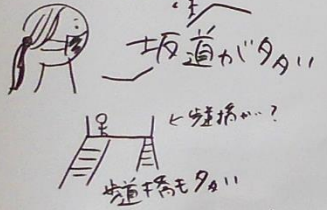 坂道が多い
←歩道橋が…?
歩道橋も多い